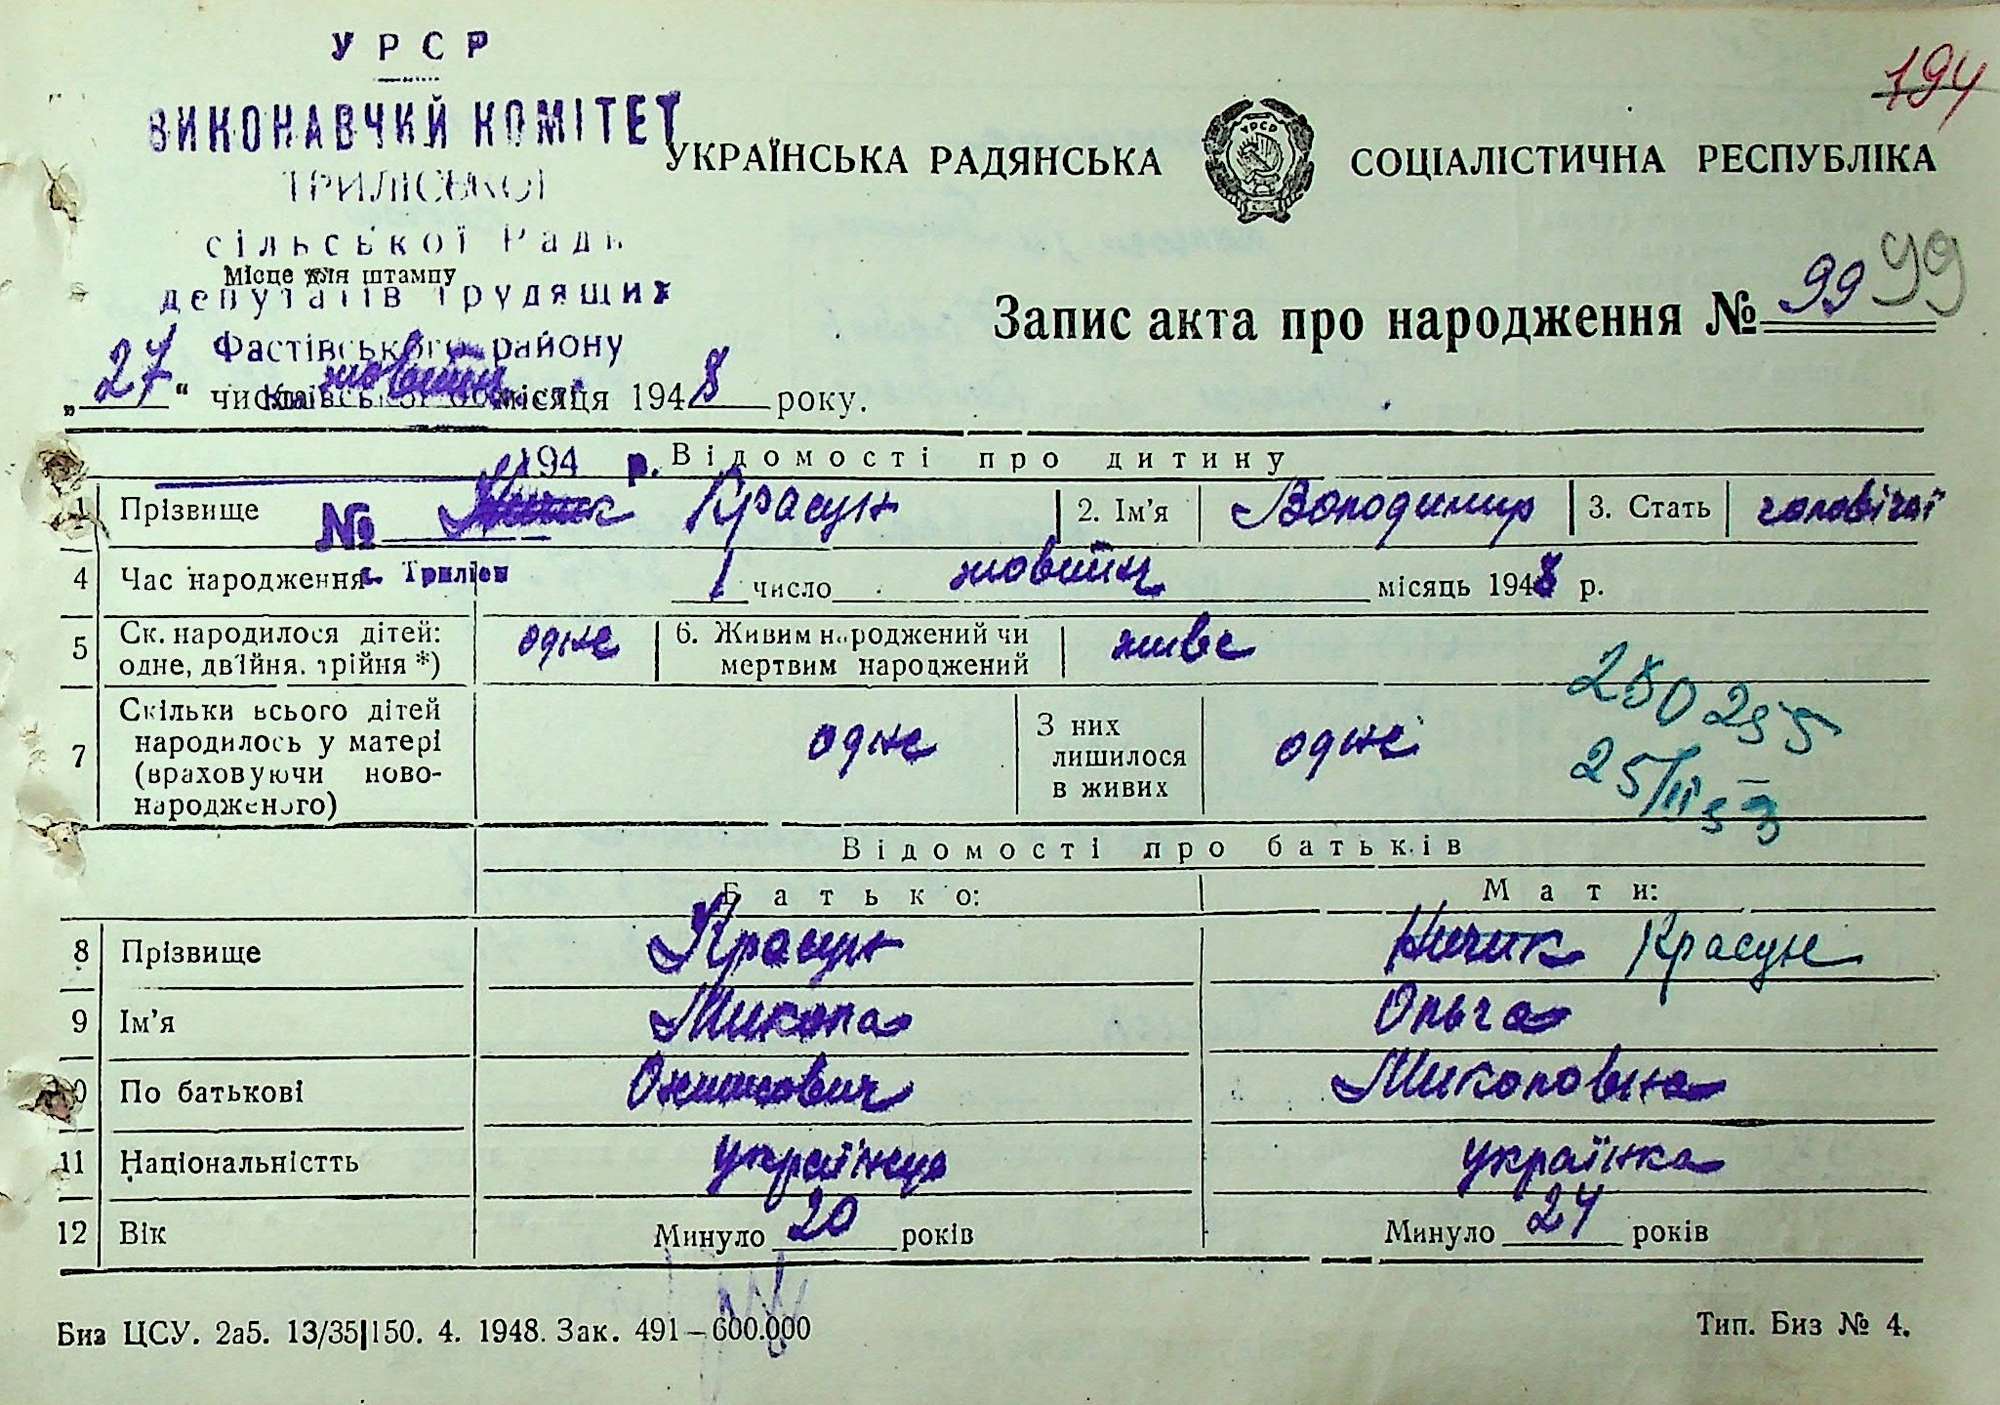 УРСР
ВИКОНАВЧИЙ КОМІТЕТ
ТРИЛІСЬКОЇ
сільської Ради
Місце для штампу
депутатів трудящих
Фастівського району
Київської області
194 р.
№
с. Триліси
194
УКРАЇНСЬКА РАДЯНСЬКА СОЦІАЛІСТИЧНА РЕСПУБЛІКА
УРСР
Запис акта про народження № 99 99
„27“ числа жовтня місяця 1948 року.
Відомості про дитину
1 Прізвище Ничик Красун 2. Ім'я Володимир 3. Стать чоловічої
4 Час народження 1 число жовтня місяць 1948 р.
5 Ск. народилося дітей: одне, двійня, трійня *) одне 6. Живим народжений чи мертвим народжений живе
7 Скільки всього дітей народилось у матері (враховуючи ново-народженого) одне З них лишилося в живих одне
280255
25/II 53
Відомості про батьків
Батько: Мати:
8 Прізвище Красун Ничик Красун
9 Ім'я Микола Ольга
10 По батькові Миколовна
11 Національністть українець українка
12 Вік Минуло 20 років Минуло 24 років
Биз ЦСУ. 2а5. 13/35|150. 4. 1948. Зак. 491—600.000 Тип. Биз № 4.